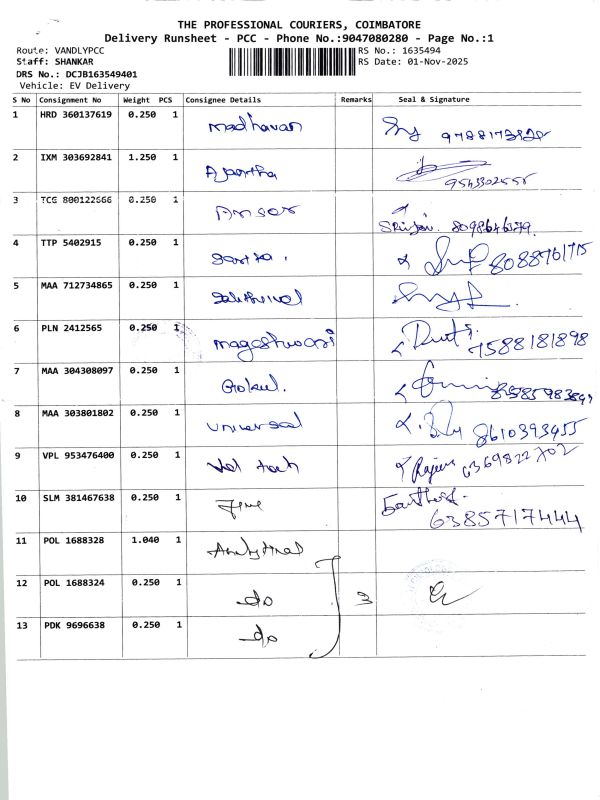 THE PROFESSIONAL COURIERS, COIMBATORE
Delivery Runsheet - PCC - Phone No.:9047080280 - Page No.:1
Route: VANDLYPCC RS No.: 1635494
Staff: SHANKAR RS Date: 01-Nov-2025
DRS No.: DCJB163549401
Vehicle: EV Delivery
S No Consignment No Weight PCS Consignee Details Remarks Seal & Signature
1 HRD 360137619 0.250 1 Madhavan
2 IXM 303692841 1.250 1 9543302555
3 TCG 800122666 0.250 1 Ansar 8098646379
4 TTP 5402915 0.250 1 8088761715
5 MAA 712734865 0.250 1
6 PLN 2412565 0.250 1 Mageshwari 7588181898
7 MAA 304308097 0.250 1 Gokul.
8 MAA 303801802 0.250 1 Universal 8610393955
9 VPL 953476400 0.250 1 Vel tech Rajesh 6369822702
10 SLM 381467638 0.250 1 6385717444
11 POL 1688328 1.040 1 Analytical
12 POL 1688324 0.250 1 do 3
13 PDK 9696638 0.250 1 do